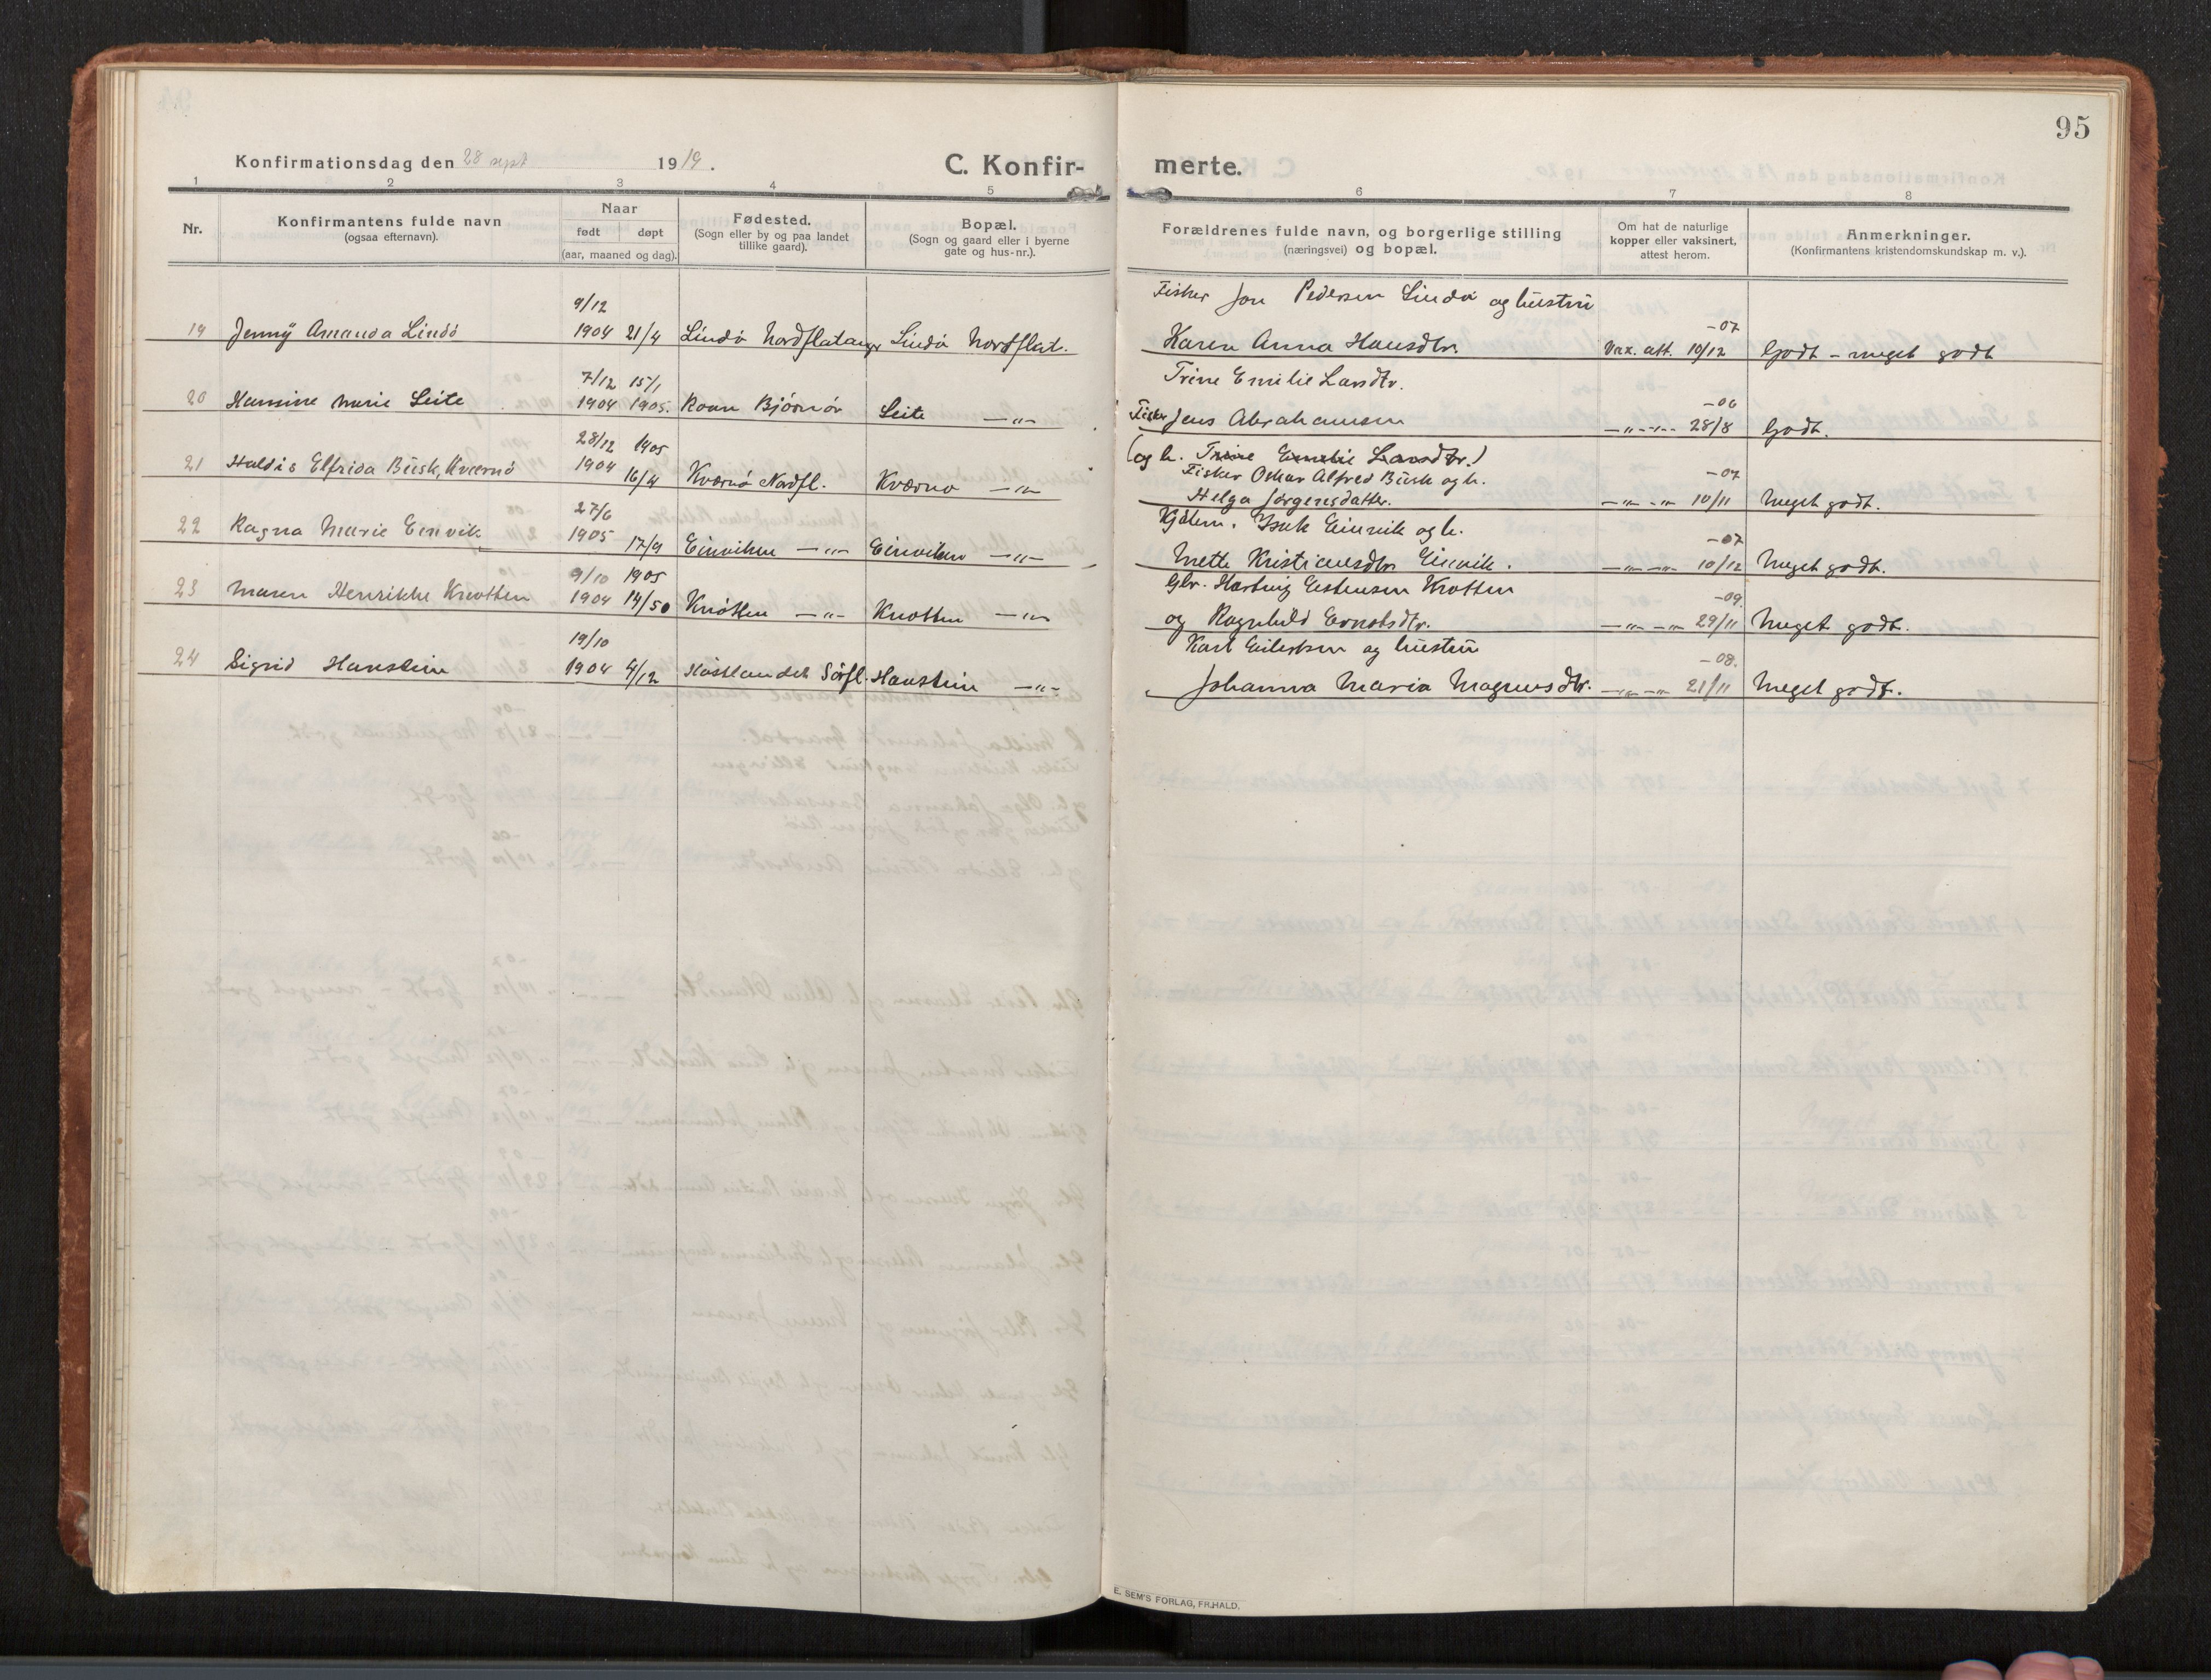 95
Konfirmationsdag den 28 sept 1919.
C. Konfir-
merte.
1 2 3 4 5 6 7 8
Nr.
Konfirmantens fulde navn
(ogsaa efternavn).
Naar
født døpt
(aar, maaned og dag).
Fødested.
(Sogn eller by og paa landet
tillike gaard).
Bopæl.
(Sogn og gaard eller i byerne
gate og hus-nr.).
Forældrenes fulde navn, og borgerlige stilling
(næringsvei) og bopæl.
Om hat de naturlige
kopper eller vaksinert,
attest herom.
Anmerkninger.
(Konfirmantens kristendomskundskap m. v.).
9/12 Fisker Jon Pedersen Lindö og hustru
-07
19 Jenny Amanda Lindö 1904 21/4 Lindö Nordflatanger Lindö Nordflat. Karen Anna Hansdtr. Vax. att. 10/12 Godt - meget godt
7/12 15/1 Trine Emilie Larsdtr.
-06
20 Hansine Marie Leite 1904 1905. Roan Bjørnör Leite —"— Fisker Jens Abrahamsen —"— 28/8 Godt.
28/12 1905 (og h. Trine Emelie Larsdtr.)
Fisker Oskar Alfred Busk og h. -07
21 Haldis Elfrida Busk, Kværnö 1904 16/4 Kværnö Nordfl. Kværnö —"— Helga Jørgensdatter. —"— 10/11 Meget godt.
27/6 Gdem. Isak Einvik og h.
-07
22 Ragna Marie Einvik 1905 17/9 Einviken —"— Einviken —"— Mette Kristiansdtr. Einvik. —"— 10/12 Meget godt.
9/10 1905 Gbr. Hartvig Estensen Knotten
-09.
23 Maren Henrikke Knotten 1904 14/50 Knotten —"— Knotten —"— og Ragnhild Ernstsdtr. —"— 29/11 Meget godt.
19/10 Karl Eilertsen og hustru
-08.
24 Sigrid Hanstein 1904 4/12 Hasslandet Sörfl. Hanstein —"— Johanna Maria Magnusdtr. —"— 21/11 Meget godt.
E. SEM'S FORLAG, FR.HALD.